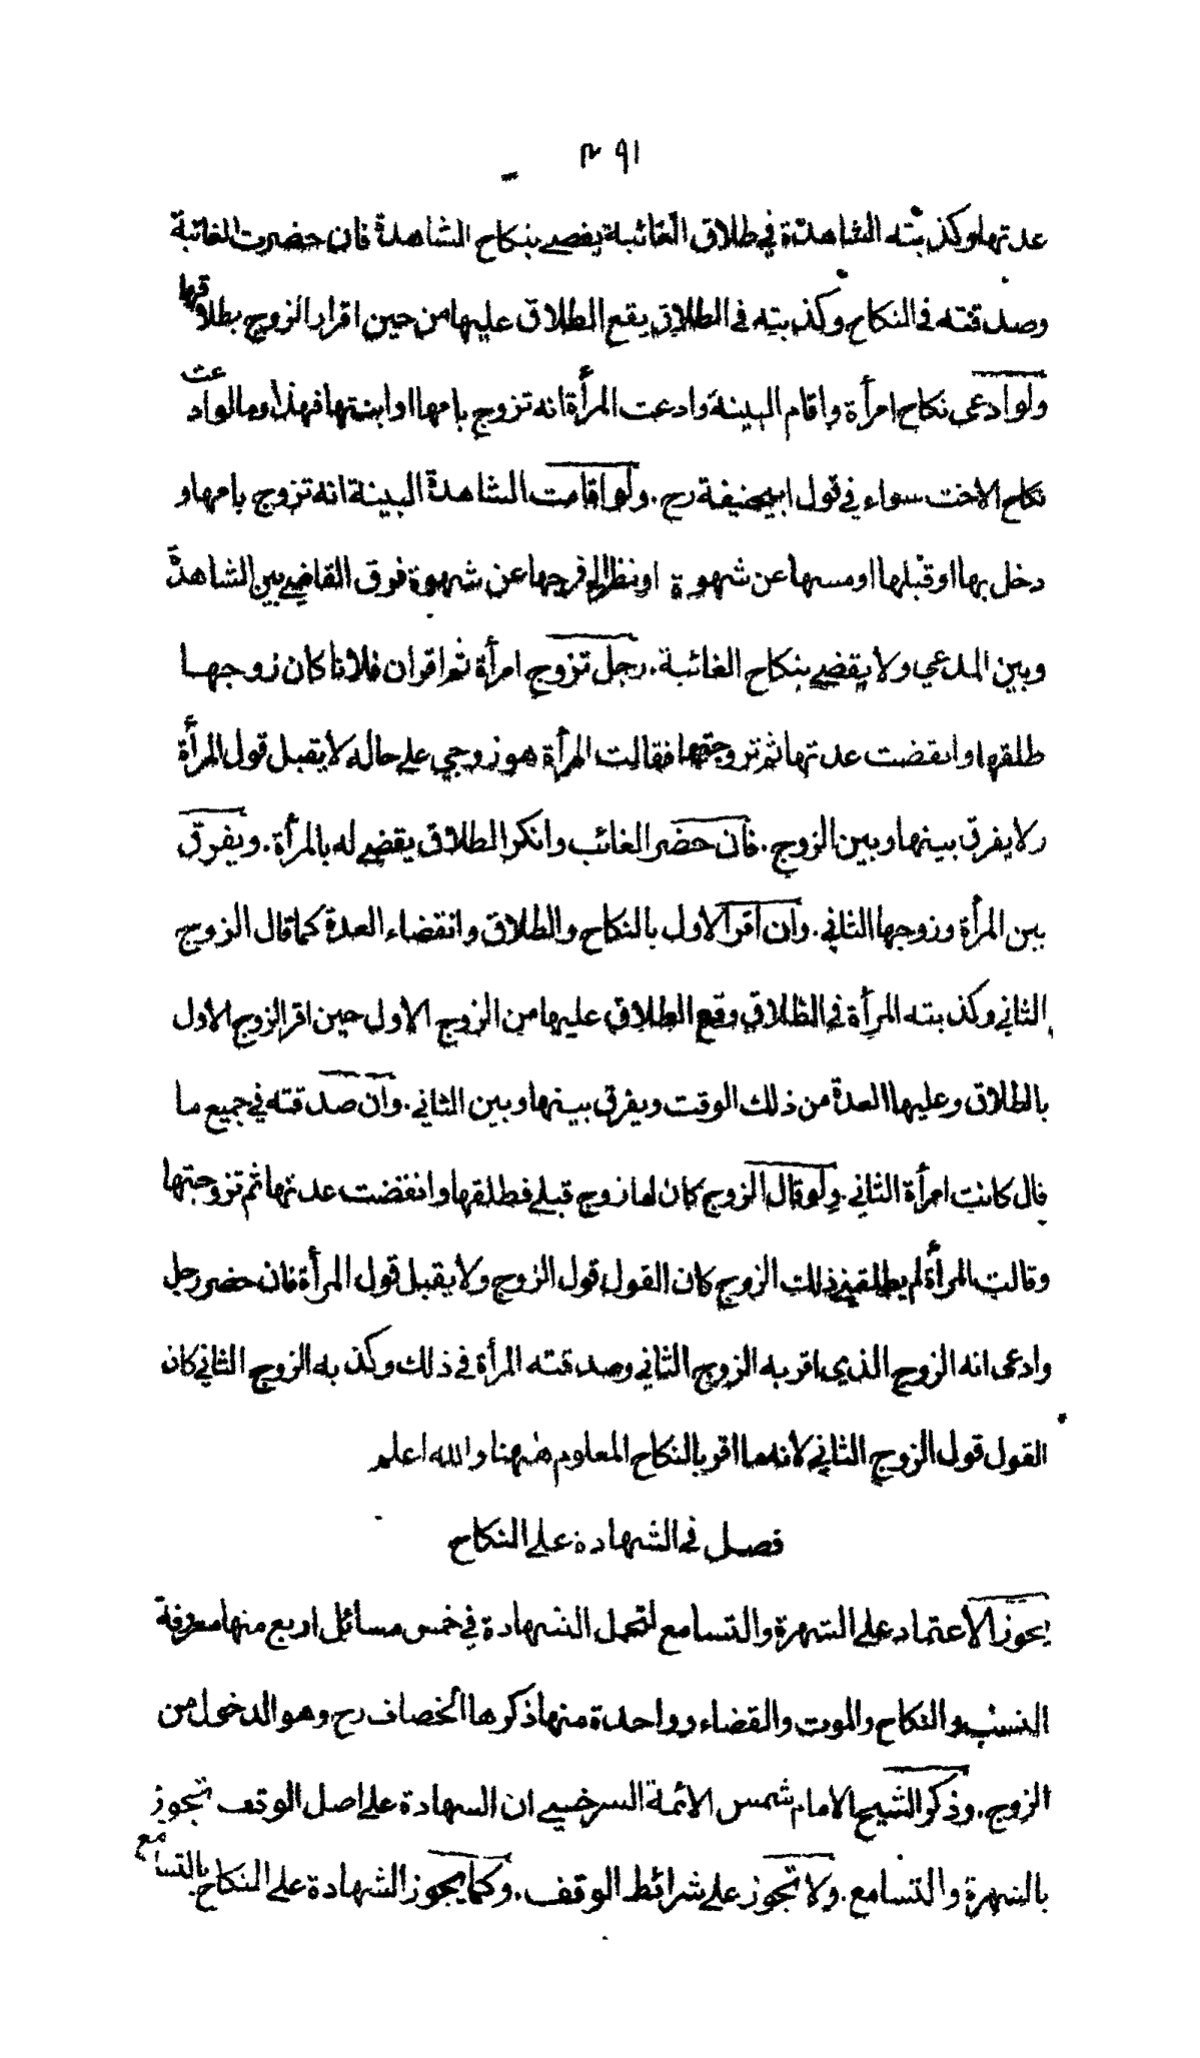 ٤٩١
عدتها وكذبته الشاهدة في طلاق الغائبة يقضى بنكاح الشاهدة فان حضرت الغائبة
وصدقته في النكاح وكذبته في الطلاق يقع الطلاق عليها من حين اقرار الزوج بطلاقها
ولو ادعى نكاح امرأة واقام البينة وادعت المرأة انه تزوج بامها او ابنتها فهذا وما لو ادعت
نكاح الاخت سواء في قول ابيحنيفة رح . ولو اقامت الشاهدة البينة انه تزوج بامها و
دخل بها او قبلها او مسها عن شهوة او نظر الى فرجها عن شهوة فرق القاضي بين الشاهدة
وبين المدعي ولا يقضي بنكاح الغائبة . رجل تزوج امرأة ثم اقر ان فلانا كان زوجها
طلقها وانقضت عدتها ثم تزوجتها فقالت المرأة هو زوجي على حاله لا يقبل قول المرأة
ولا يفرق بينها وبين الزوج . فان حضر الغائب وانكر الطلاق يقضي له بالمرأة . ويفرق
بين المرأة وزوجها الثاني . وان اقر الاول بالنكاح والطلاق وانقضاء العدة كما قال الزوج
الثاني وكذبته المرأة في الطلاق وقع الطلاق عليها من الزوج الاول حين اقر الزوج الاول
بالطلاق وعليها العدة من ذلك الوقت ويفرق بينها وبين الثاني . وان صدقته في جميع ما
قال كانت امرأة الثاني . ولو قال الزوج كان لها زوج قبلي فطلقها وانقضت عدتها ثم تزوجتها
وقالت المرأة لم يطلقني ذلك الزوج كان القول قول الزوج ولا يقبل قول المرأة فان حضر رجل
وادعى انه الزوج الذي اقر به الزوج الثاني وصدقته المرأة في ذلك وكذبه الزوج الثاني كان
القول قول الزوج الثاني لانه ما اقر بالنكاح المعلوم ههنا والله اعلم
فصل في الشهادة على النكاح
يجوز الاعتماد على الشهرة والتسامع لتحمل الشهادة في خمس مسائل اربع منها معروفة
النسب والنكاح والموت والقضاء وواحدة منها ذكرها الخصاف رح وهو الدخول من
الزوج . وذكر الشيخ الامام شمس الائمة السرخسي ان الشهادة على اصل الوقف تجوز
بالشهرة والتسامع . ولا تجوز على شرائط الوقف . وكما يجوز الشهادة على النكاح بالتسامع